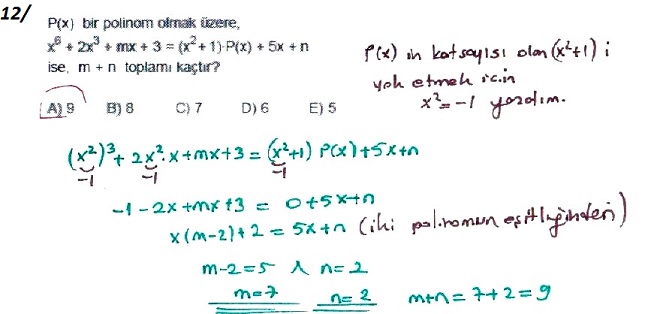 12/
P(x) bir polinom olmak üzere,
x⁶ + 2x³ + mx + 3 = (x²+1)·P(x) + 5x + n
ise, m + n toplamı kaçtır?
A) 9 B) 8 C) 7 D) 6 E) 5
P(x) in katsayısı olan (x²+1) i
yok etmek için
x²=-1 yazdım.
(x²)³ + 2x².x+mx+3 = (x²+1) P(x)+5x+n
-1 -1 -1
-1-2x+mx+3 = 0+5x+n
x(m-2)+2 = 5x+n (iki polinomun eşitliğinden)
m-2=5 ∧ n=2
m=7 n=2 m+n=7+2=9